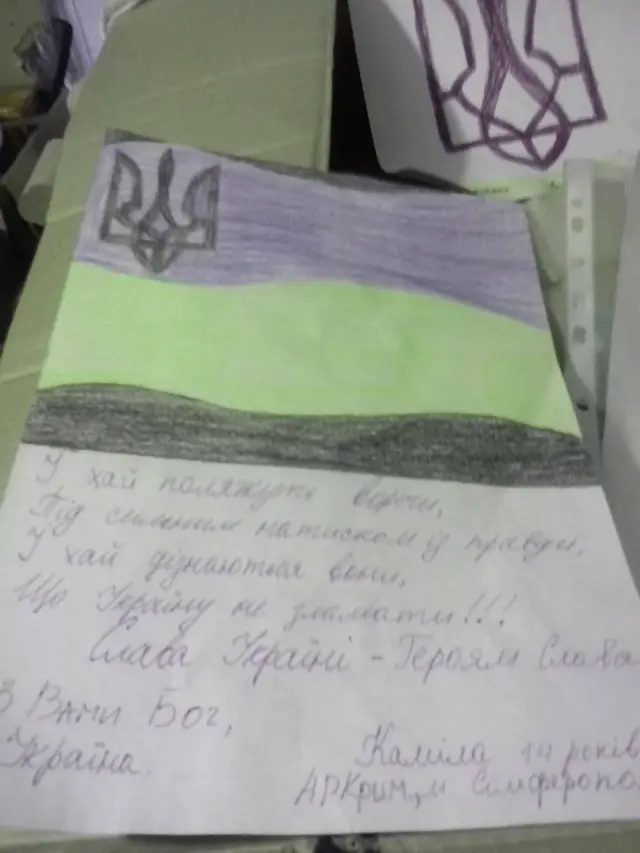 І хай поляжуть вороги,
Під сильним натиском із правди,
І хай дізнаються вони,
Що Україну не зламати!!!
Слава Україні - Героям Слава
З Вами Бог,
Україна.
Каміла 14 років
АРКрим, м Сімферопо